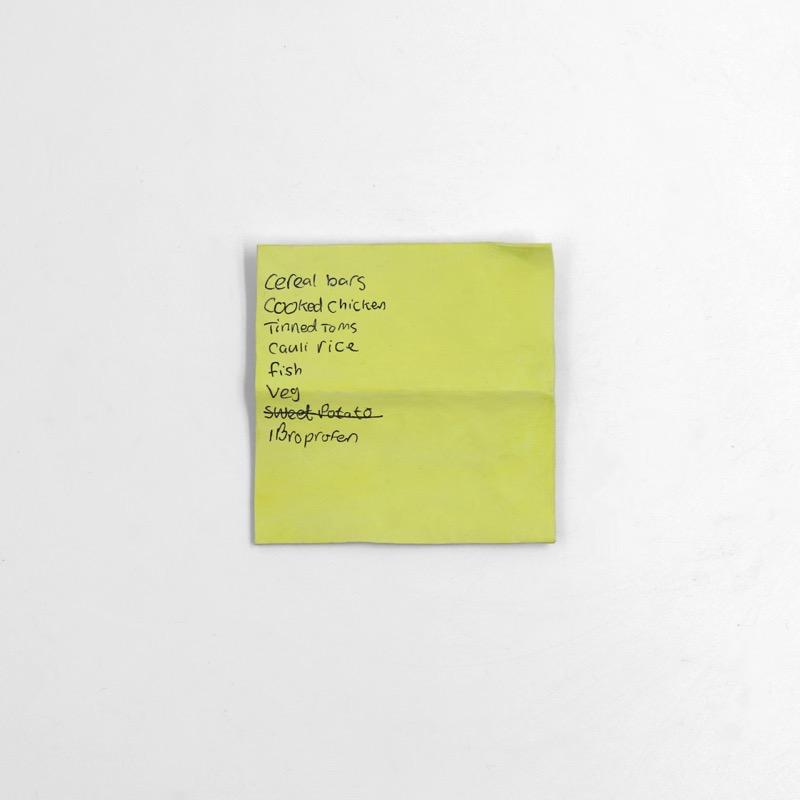 Cereal bars
Cooked Chicken
Tinned Toms
Cauli rice
fish
Veg
Sweet Potato
IBroprofen